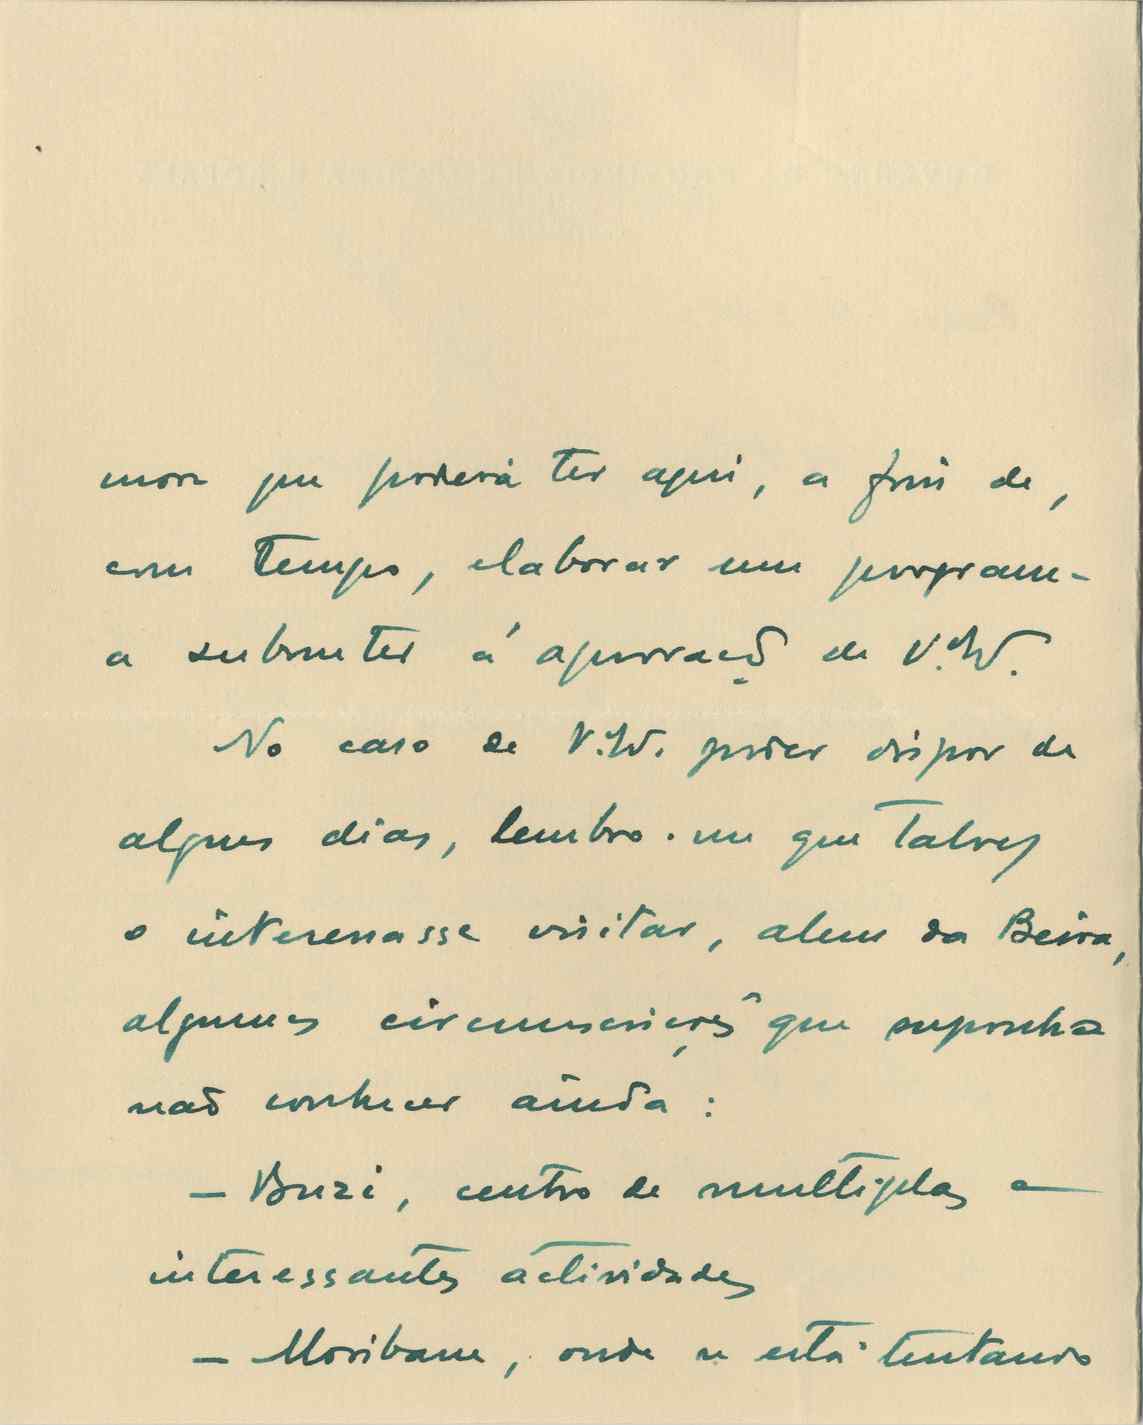 mora que poderá ter aqui, a fim de,
com tempo, elaborar um program-
a submeter á aprovação de V. Ex.
No caso de V. Ex. poder dispor de
alguns dias, lembro-me que talvez
o interessasse visitar, alem da Beira,
algumas circumscrições que suponho
não conhecer ainda:
– Buzi, centro de multiplas e
interessantes actividades
– Moribane, onde se está tentando